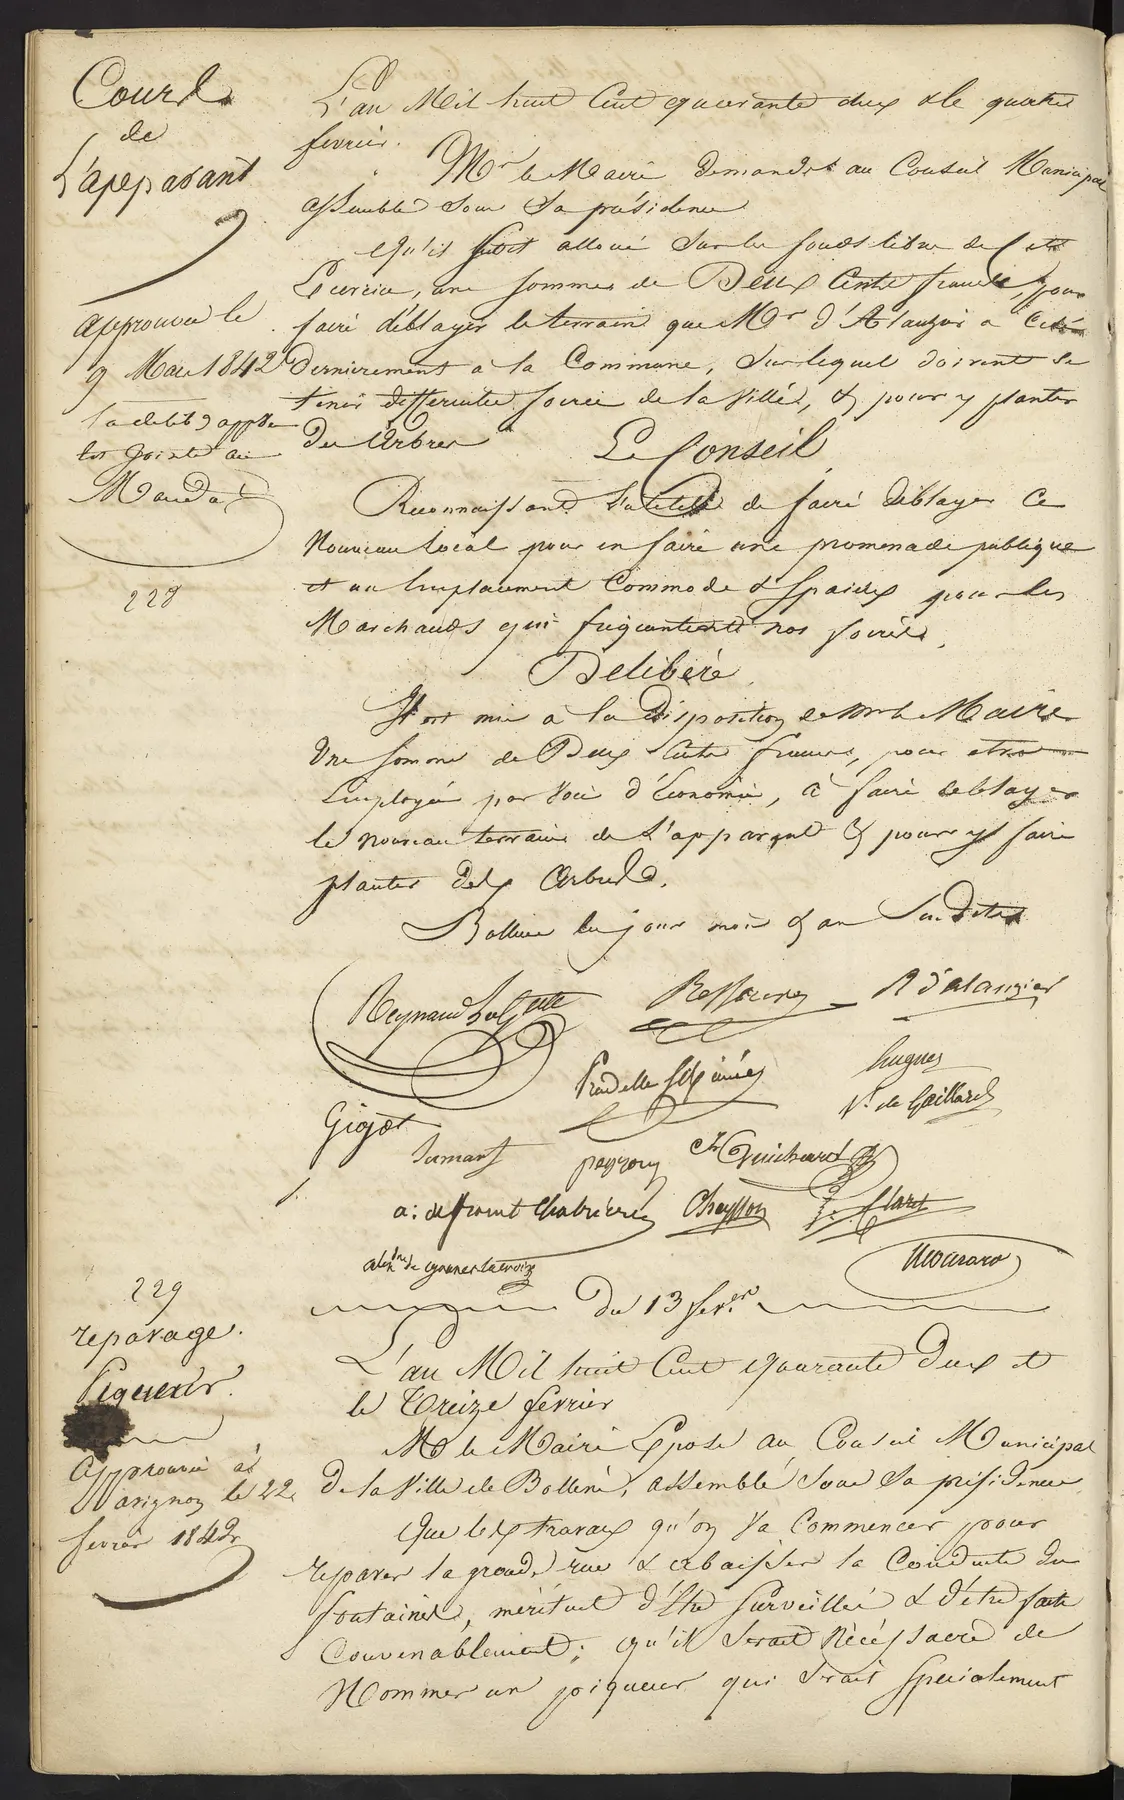 Cours
de
L'apeparant
approuvée le
9 Mars 1842
la delib on app
est jointe au
Mandat
228
L'an Mil huit Cent quarante deux & le quatre
fevrier.
Mr le Maire demande au Conseil Municipal
assemblé sous sa présidence
qu'il soit alloué sur les fonds libres de Cet
Exercice, une somme de Deux Cents francs, pour
faire déblayer le terrain que Mr d'Alauzier a Cédé
dernierement à la Commune, sur lequel doivent se
tenir differentes foires de la Ville, & pour y planter
des Arbres
Le Conseil
Reconnaissant l'utilité de faire déblayer Ce
Nouveau local pour en faire une promenade publique
et un Emplacement Commode & Spacieux pour les
Marchands qui frequentent nos foires,
Delibere
Il est mis à la Disposition de Mr le Maire
Une somme de Deux Cents francs, pour etre
Employée par Voie d'Economie, à faire deblayer
le nouveau terrain de L'apparant & pour y faire
planter des Arbres.
Bollene les jour mois & an Susdits
Reynaud Lagardette
R d'alauzier
Pradelle
hugues
Vr de Gaillard
Gigot
Jamart
peyrouy
Ch Guichard
a: defroment Chabrieres
Cheysson
Clary
du 13 fevrier
229
reparage.
Piqueur.
Approuvée à
avignon le 22
fevrier 1842
L'an Mil huit Cent quarante deux et
le Treize fevrier
Mr le Maire Expose au Conseil Municipal
De la Ville de Bollene, assemblé sous sa présidence,
Que les travaux qu'on Va Commencer pour
reparer la grande rue & abaisser la Conduite des
fontaines, méritent d'Etre Surveillés & d'être faits
Convenablement; qu'il serait Nécéssaire de
Nommer un piqueur qui serait specialement